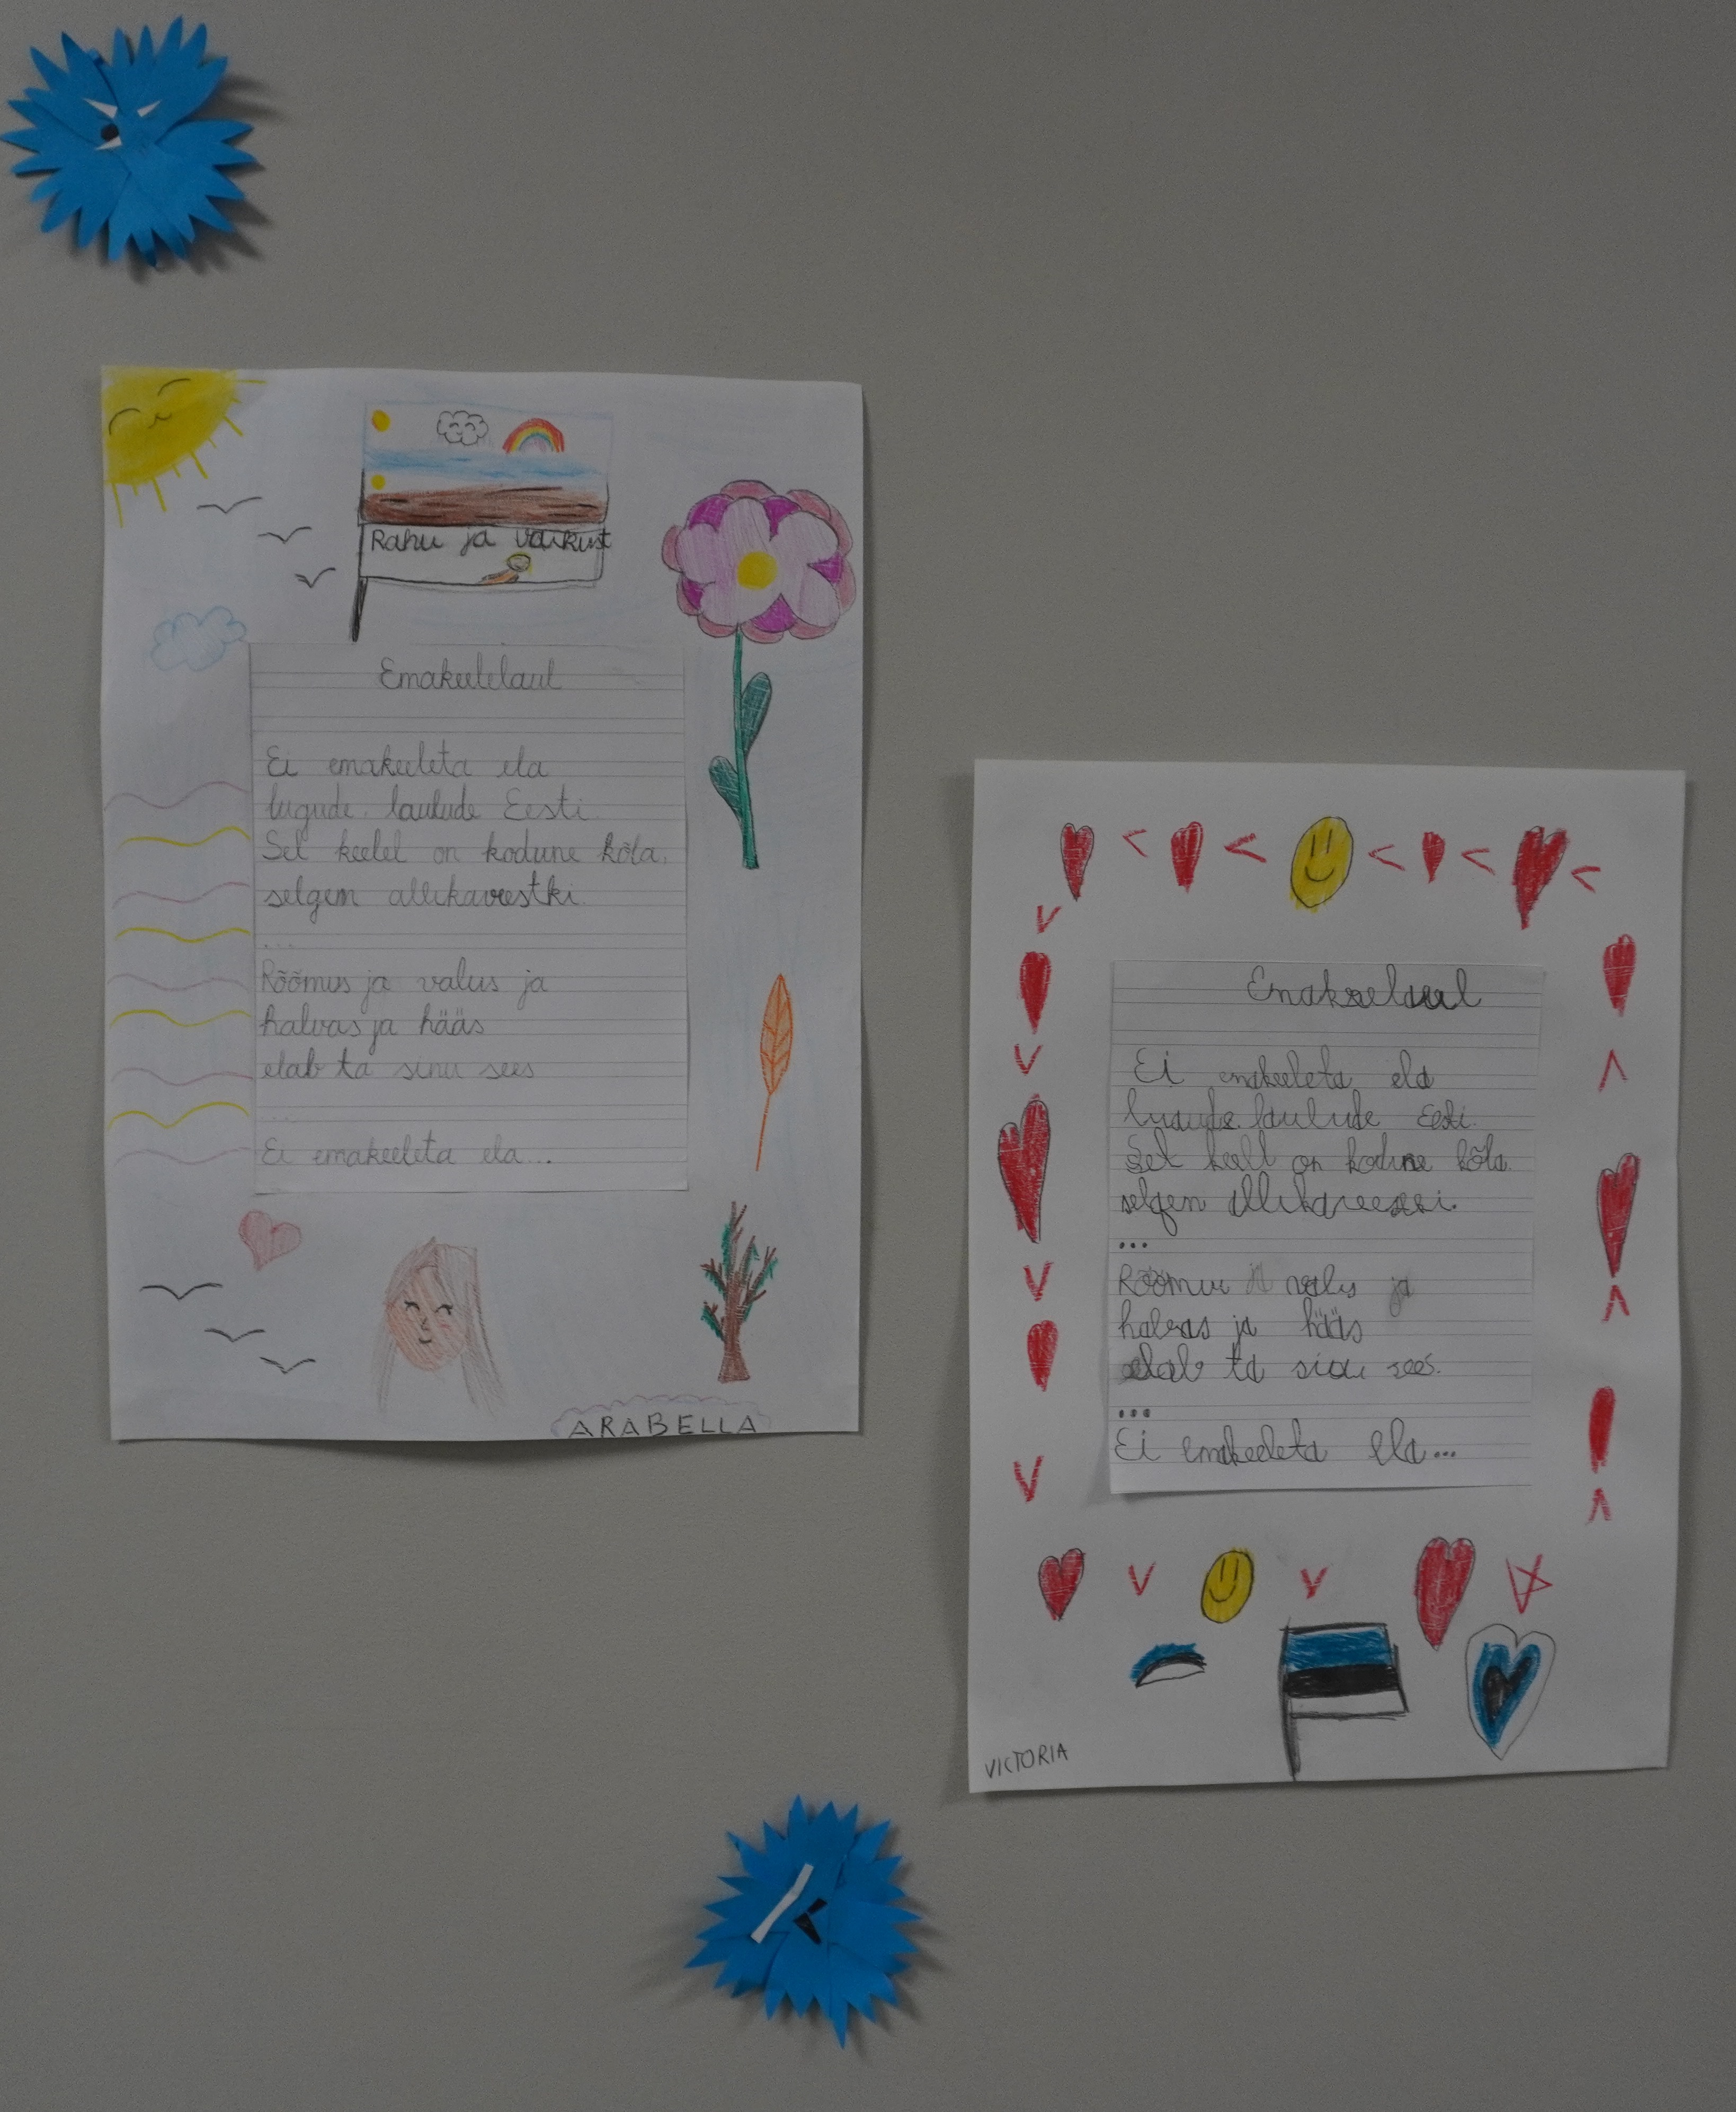 Rahu ja vaikust
Emakeelelaul
Ei emakeeleta ela
lugude, laulude Eesti.
Sel keelel on kodune kõla,
selgem allikaveestki.
...
Rõõmus ja valus ja
halvas ja hääs
elab ta sinu sees
...
Ei emakeeleta ela...
ARABELLA
Ei emakeeleta ela
laulude Eesti.
Sel on kodune kõla
selgem
...
valus ja
halvas ja hääs
elab ta sinu sees.
...
Ei emakeeleta ela...
VICTORIA